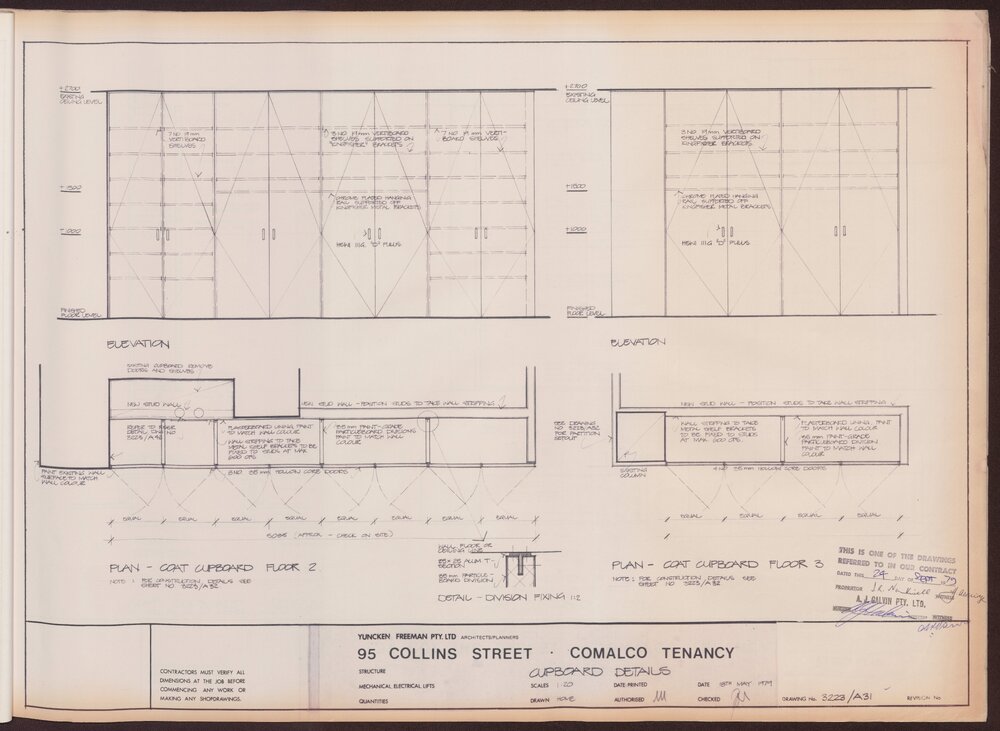 +2700
EXISTING
CEILING LEVEL
7 NO 19mm
VERTIBOARD
SHELVES
3 NO 19mm VERTIBOARD
SHELVES SUPPORTED ON
"KINGFISHER" BRACKETS
7 NO 19mm VERTI-
BOARD SHELVES
+1500
CHROME PLATED HANGING
RAIL SUPPORTED OFF
KINGFISHER METAL BRACKETS
+1000
'D' PULLS
FINISHED
FLOOR LEVEL
ELEVATION
+2700
EXISTING
CEILING LEVEL
3 NO 19mm VERTIBOARD
SHELVES SUPPORTED ON
KINGFISHER BRACKETS
+1500
CHROME PLATED HANGING
RAIL SUPPORTED OFF
KINGFISHER METAL BRACKETS
+1000
'D' PULLS
FINISHED
FLOOR LEVEL
ELEVATION
EXISTING CUPBOARD REMOVE
DOORS AND SHELVES
NEW STUD WALL
NEW STUD WALL - POSITION STUDS TO TAKE WALL STRIPPING
REFER TO
DETAIL
3223/A32
PLASTERBOARD LINING, PAINT
TO MATCH WALL COLOUR
WALL STRIPPING TO TAKE
METAL SHELF BRACKETS TO BE
FIXED TO STUDS AT MAX
600 CTS
PAINT-GRADE
PARTICLEBOARD DIVISIONS
PAINT TO MATCH WALL
COLOUR
PAINT EXISTING WALL
SURFACE TO MATCH
WALL COLOUR
8 NO 35mm HOLLOW CORE DOORS
EQUAL EQUAL EQUAL EQUAL EQUAL EQUAL EQUAL EQUAL
(APPROX - CHECK ON SITE)
PLAN - COAT CUPBOARD FLOOR 2
NOTE : FOR CONSTRUCTION DETAILS SEE
SHEET NO 3223/A32
WALL FLOOR OR
CEILING LINE
25 x 25 ALUM. T-
SECTION
PARTICLE-
BOARD DIVISION
DETAIL - DIVISION FIXING 1:2
SEE DRAWING
FOR PARTITION
SETOUT
NEW STUD WALL - POSITION STUDS TO TAKE WALL STRIPPING
WALL STRIPPING TO TAKE
METAL SHELF BRACKETS
TO BE FIXED TO STUDS
AT MAX 600 CTS.
PLASTERBOARD LINING, PAINT
TO MATCH WALL COLOUR
PAINT-GRADE
PARTICLEBOARD DIVISION
PAINT TO MATCH WALL
COLOUR
EXISTING
COLUMN
4 NO 35mm HOLLOW CORE DOORS
EQUAL EQUAL EQUAL EQUAL
PLAN - COAT CUPBOARD FLOOR 3
NOTE : FOR CONSTRUCTION DETAILS SEE
SHEET NO 3223/A32
THIS IS ONE OF THE DRAWINGS
REFERRED TO IN OUR CONTRACT
DATED THIS 24 DAY OF SEPT 79
PROPRIETOR
WITNESS
A. J. GALVIN PTY. LTD.
WITNESS
YUNCKEN FREEMAN PTY. LTD ARCHITECTS/PLANNERS
95 COLLINS STREET · COMALCO TENANCY
STRUCTURE
CUPBOARD DETAILS
MECHANICAL ELECTRICAL LIFTS
SCALES 1:20
DATE PRINTED
DATE 18TH MAY 1979
QUANTITIES
DRAWN
AUTHORISED
CHECKED
DRAWING No. 3223/A31
REVISION No
CONTRACTORS MUST VERIFY ALL
DIMENSIONS AT THE JOB BEFORE
COMMENCING ANY WORK OR
MAKING ANY SHOPDRAWINGS.